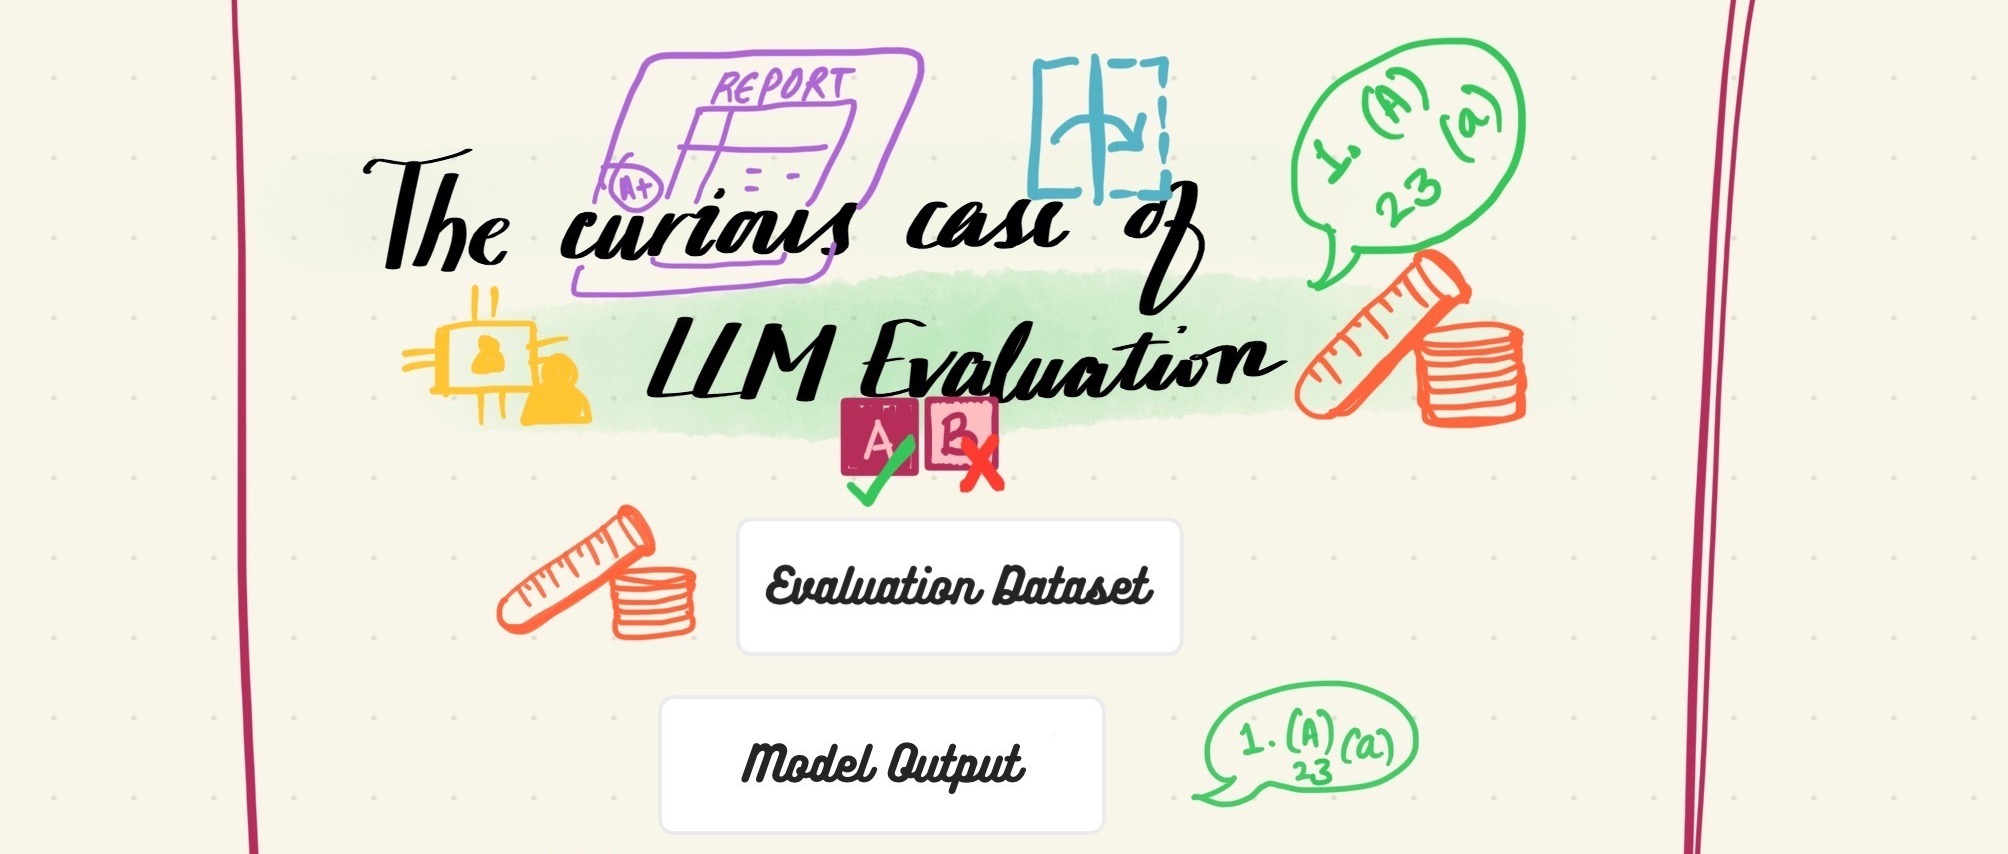 REPORT
A+
1. (A) (a)
23
The curious case of
LLM Evaluation
A B
Evaluation Dataset
Model Output
1. (A) (a)
23